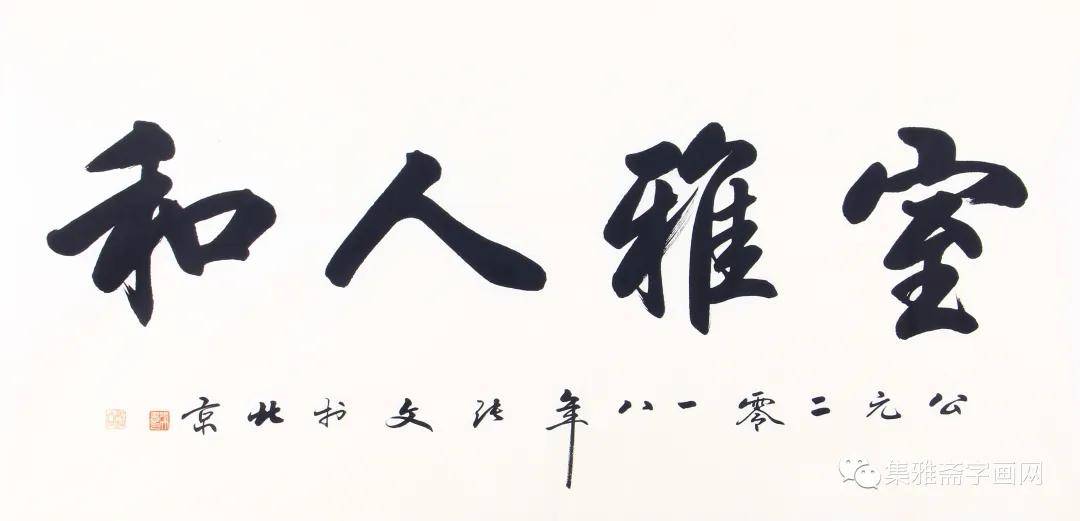 室雅人和
公元二零一八年张文于北京
集雅斋字画网